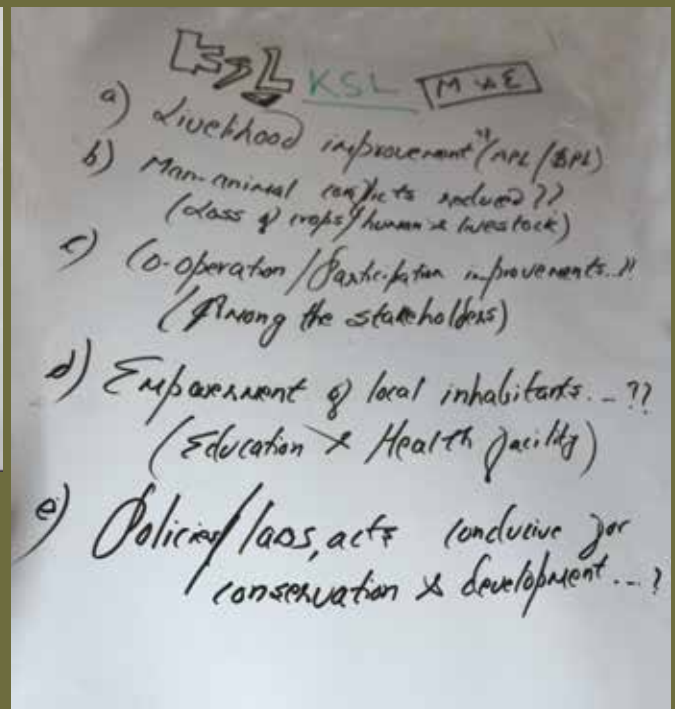 KSL KSL M & E
a) Livelihood improvement" (APL/BPL)
b) Man-animal conflicts reduced??
(Loss of crops/human & livestock)
c) Co-operation/Participation improvements.."
(Among the stakeholders)
d) Empowerment of local inhabitants...??
(Education & Health facility)
e) Policies/laws, acts conducive for
conservation & development...?